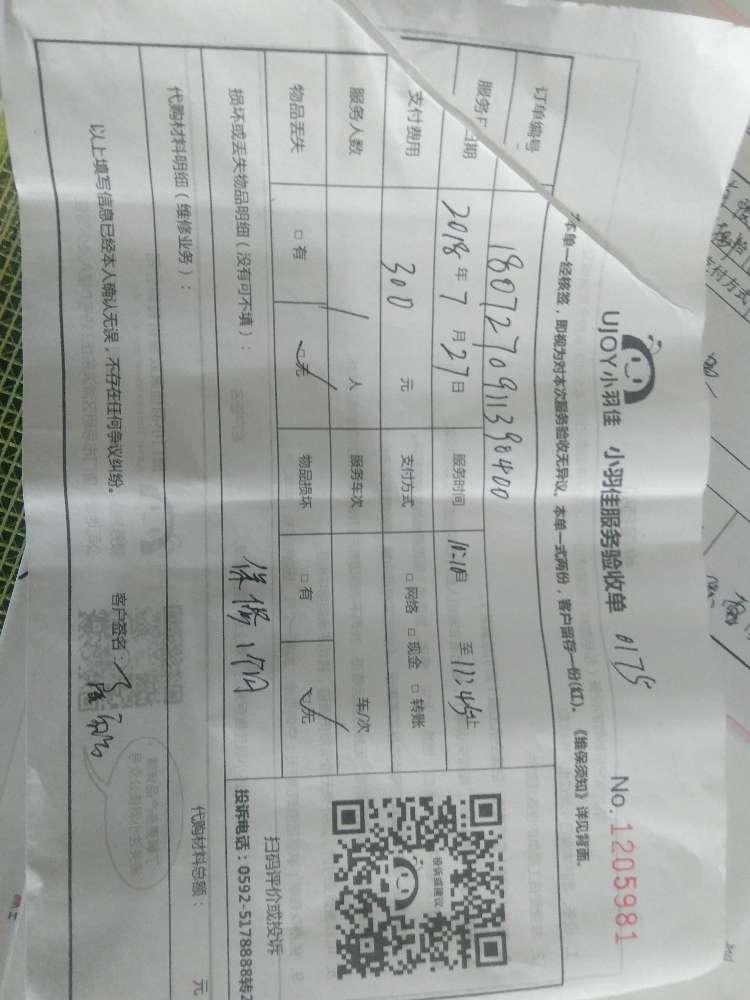 UJOY小羽佳 小羽佳服务验收单 0175 No.1205981
本单一经核签，即视为对本次服务验收无异议。本单一式两份，客户留存一份(红)。《维保须知》详见背面。
订单编号 180727091139 8400
服务日期 2018年7月27日 服务时间 10:10 至 11:45止
支付费用 300 元 支付方式 □网络 □现金 □转账
服务人数 1 人 服务车次 车/次
物品丢失 □有 □无 物品损坏 □有 □无
损坏或丢失物品明细（没有可不填）： 保修1个月
代购材料明细（维修业务）： 代购材料总额： 元
以上填写信息已经本人确认无误，不存在任何争议纠纷。 客户签名：
投诉或建议
扫码评价或投诉
投诉电话：0592-5178888转2
支付方式